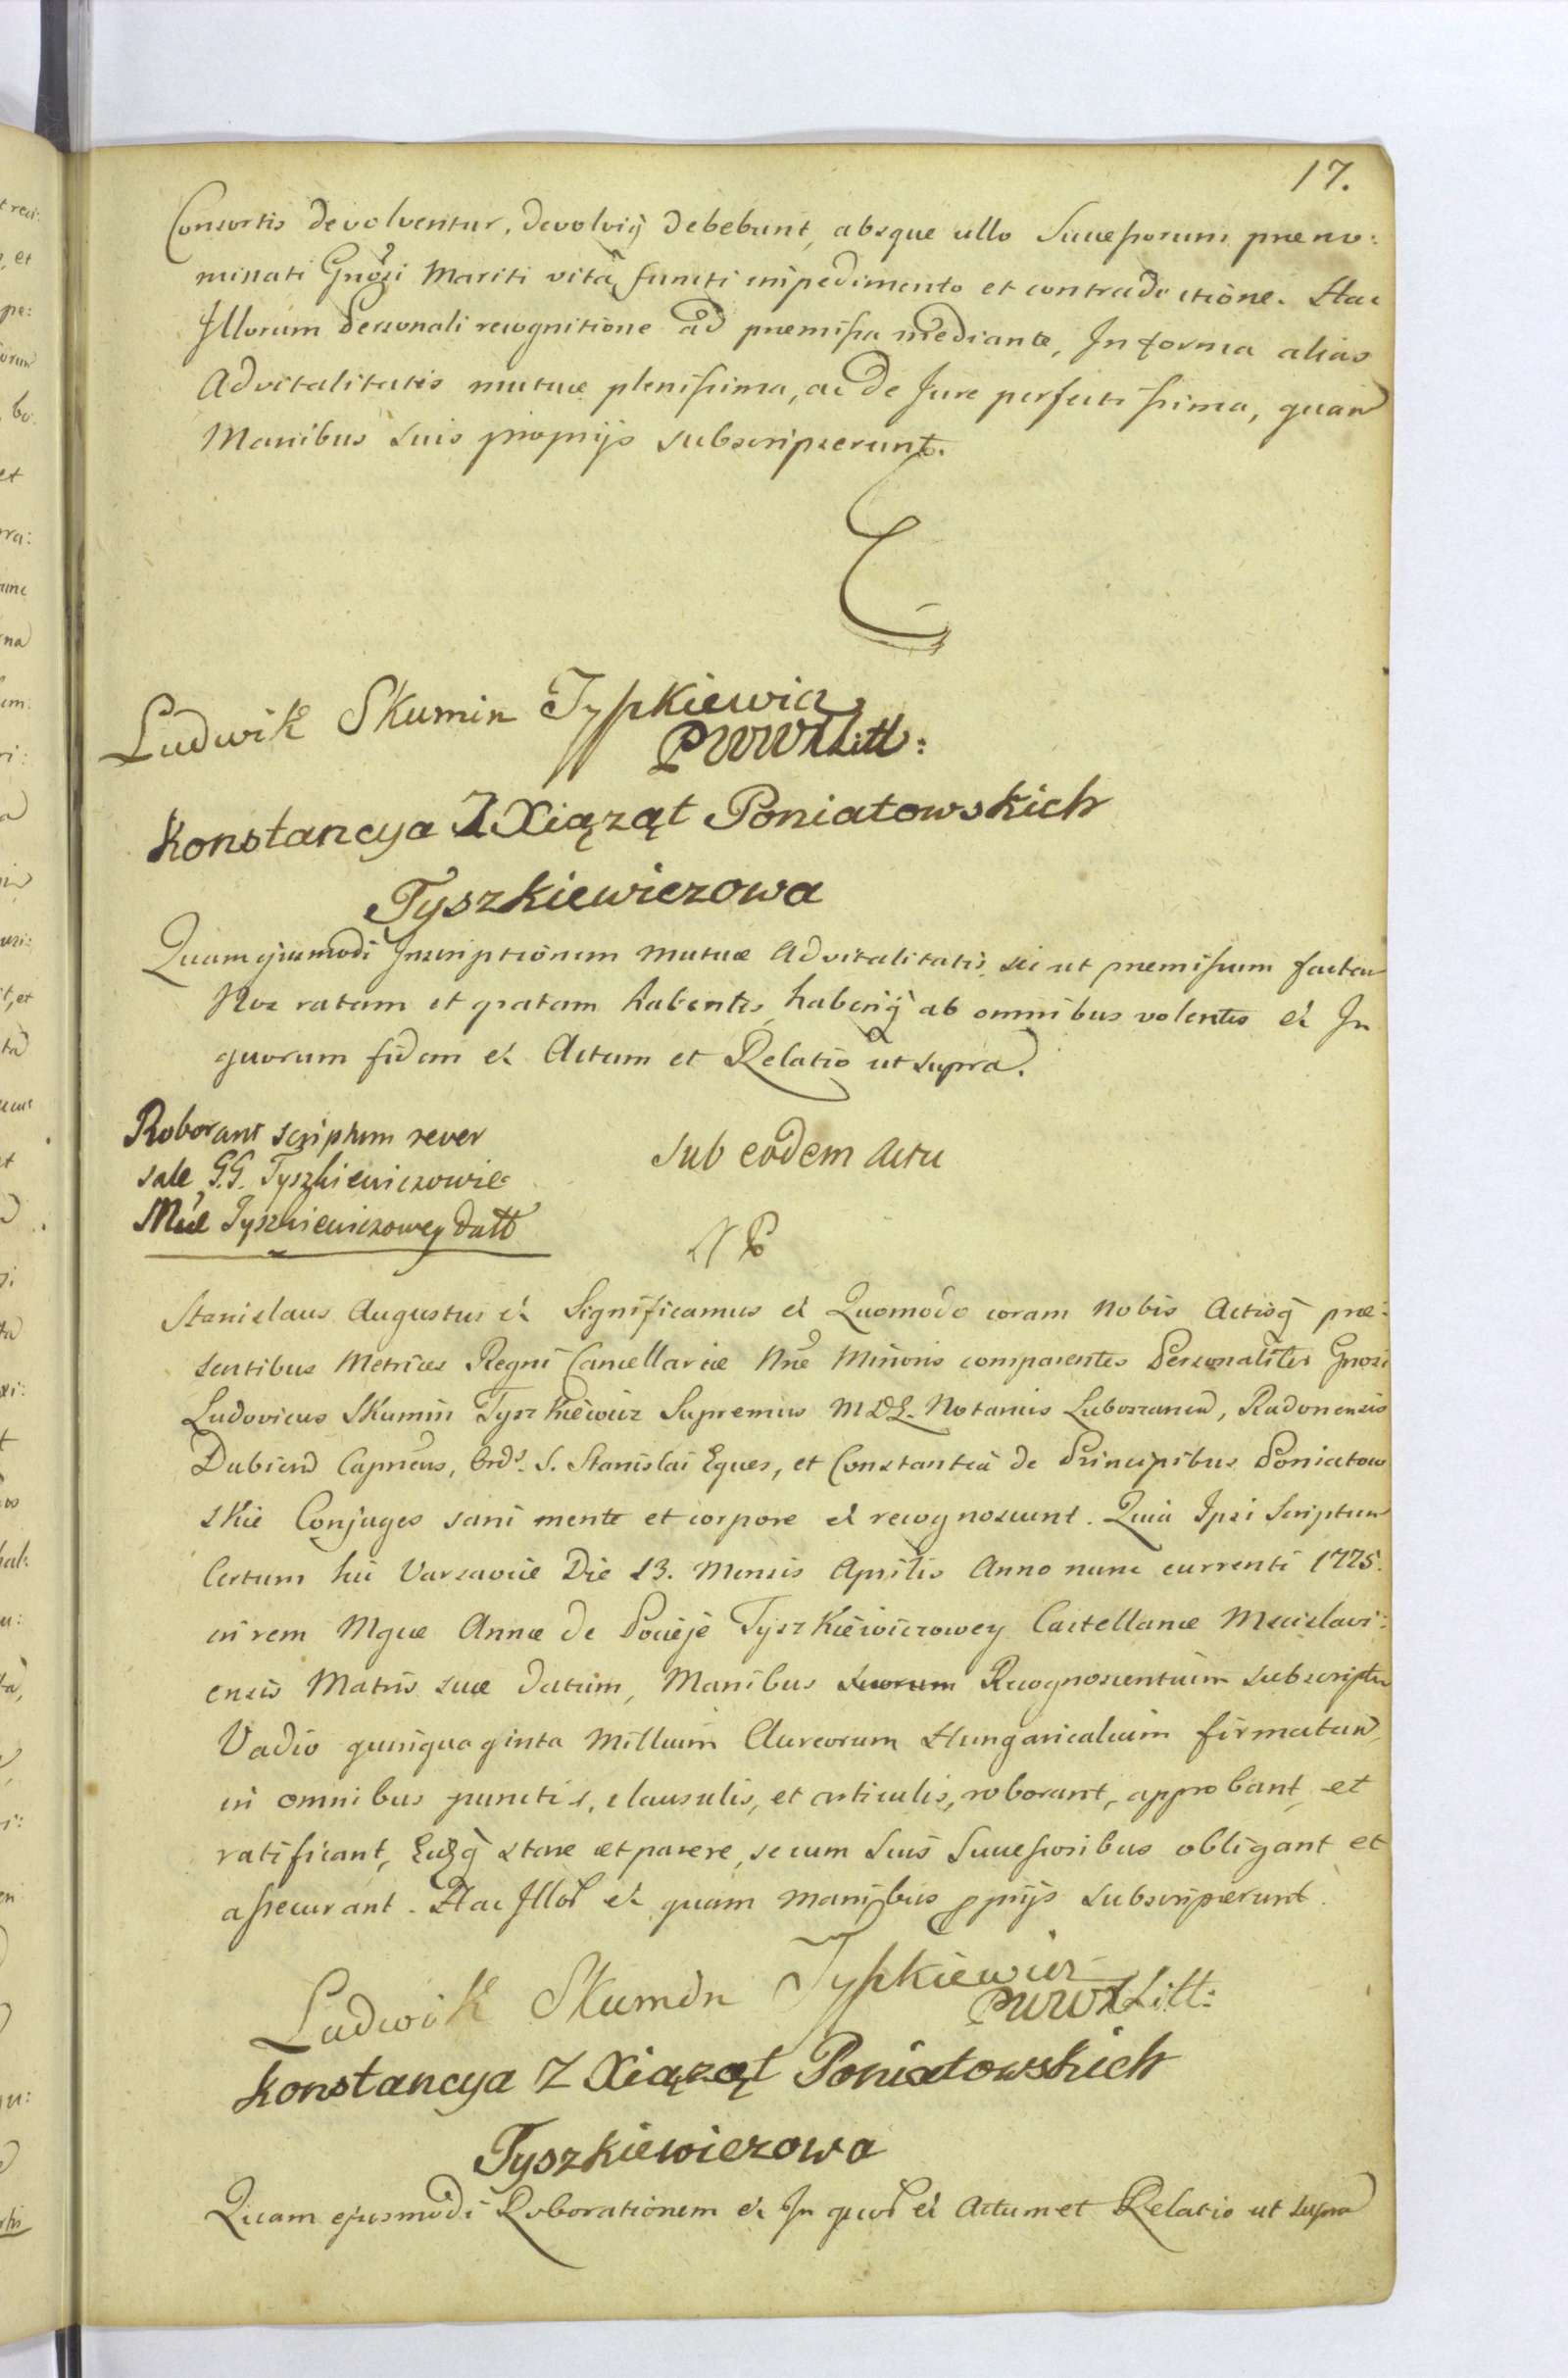 17.
Consortis devolventur, devolviq̃ debebunt, absque ullo Successorum præno:
minati Gnõsi Mariti vitâ functi impedimento et contradictione. Hac
Illorum Personali recognitione ad præmissa mediante, In forma alias
Advitalitatis mutuæ plenissima, ac de Jure perfectissima, quam
Manibus suis proprijs subscripserunt.
Ludwik Skumin Tyszkiewicz
PWWXLitt:
Konstancya Z Xiąząt Poniatowskich
Tyszkiewiczowa
Quam ejusmodi Inscriptionem mutuæ Advitalitatis sic ut præmissum factam
Nos ratam et gratam habentes, haberiq̃ ab omnibus volentes &c In
quorum fidem &c Actum et Relatio ut supra.
Roborant scriptum rever
sale G.G. Tyszkiewiczowie
Mcæ Tyszkiewiczowey datt
Sub eodem Actu
Stanislaus Augustus &c Significamus &c Quomodo coram Nobis Actisq̃ præ:
sentibus Metrices Regni Cancellariæ Nræ Minoris comparentes Personaliter Gnosi
Ludovicus Skumin Tyszkiewicz Supremus M.D.L. Notarius Luboszanen, Radonensis
Dubicen Capneus, Ord. S. Stanislai Eques, et Constantia de Principibus Poniatow
skie Conjuges sani mente et corpore &c recognoscunt. Quia Ipsi Scriptum
Certum hic Varsaviæ Die 13. Mensis Aprilis Anno nunc currenti 1775.
in rem Mgcæ Annæ de Pocieje Tyszkiewiczowey Castellanæ Mscislavi:
ensis Matris suæ datum, Manibus suorum Recognoscentium subscriptu
Vadio quinquaginta Millium Aureorum Hungaricalium firmatum
in omnibus punctis, clausulis, et articulis, roborant, approbant, et
ratificant, Eidq̃ stare et parere, se cum Suis Successoribus obligant et
assecurant. Hac Illor &c quam manibus pprijs subscripserunt.
Ludwik Skumin Tyszkiewicz
PWWXLitt:
Konstancya Z Xiąząt Poniatowskich
Tyszkiewiczowa
Quam ejusmodi Roborationem &c In quor &c Actum et Relatio ut supra